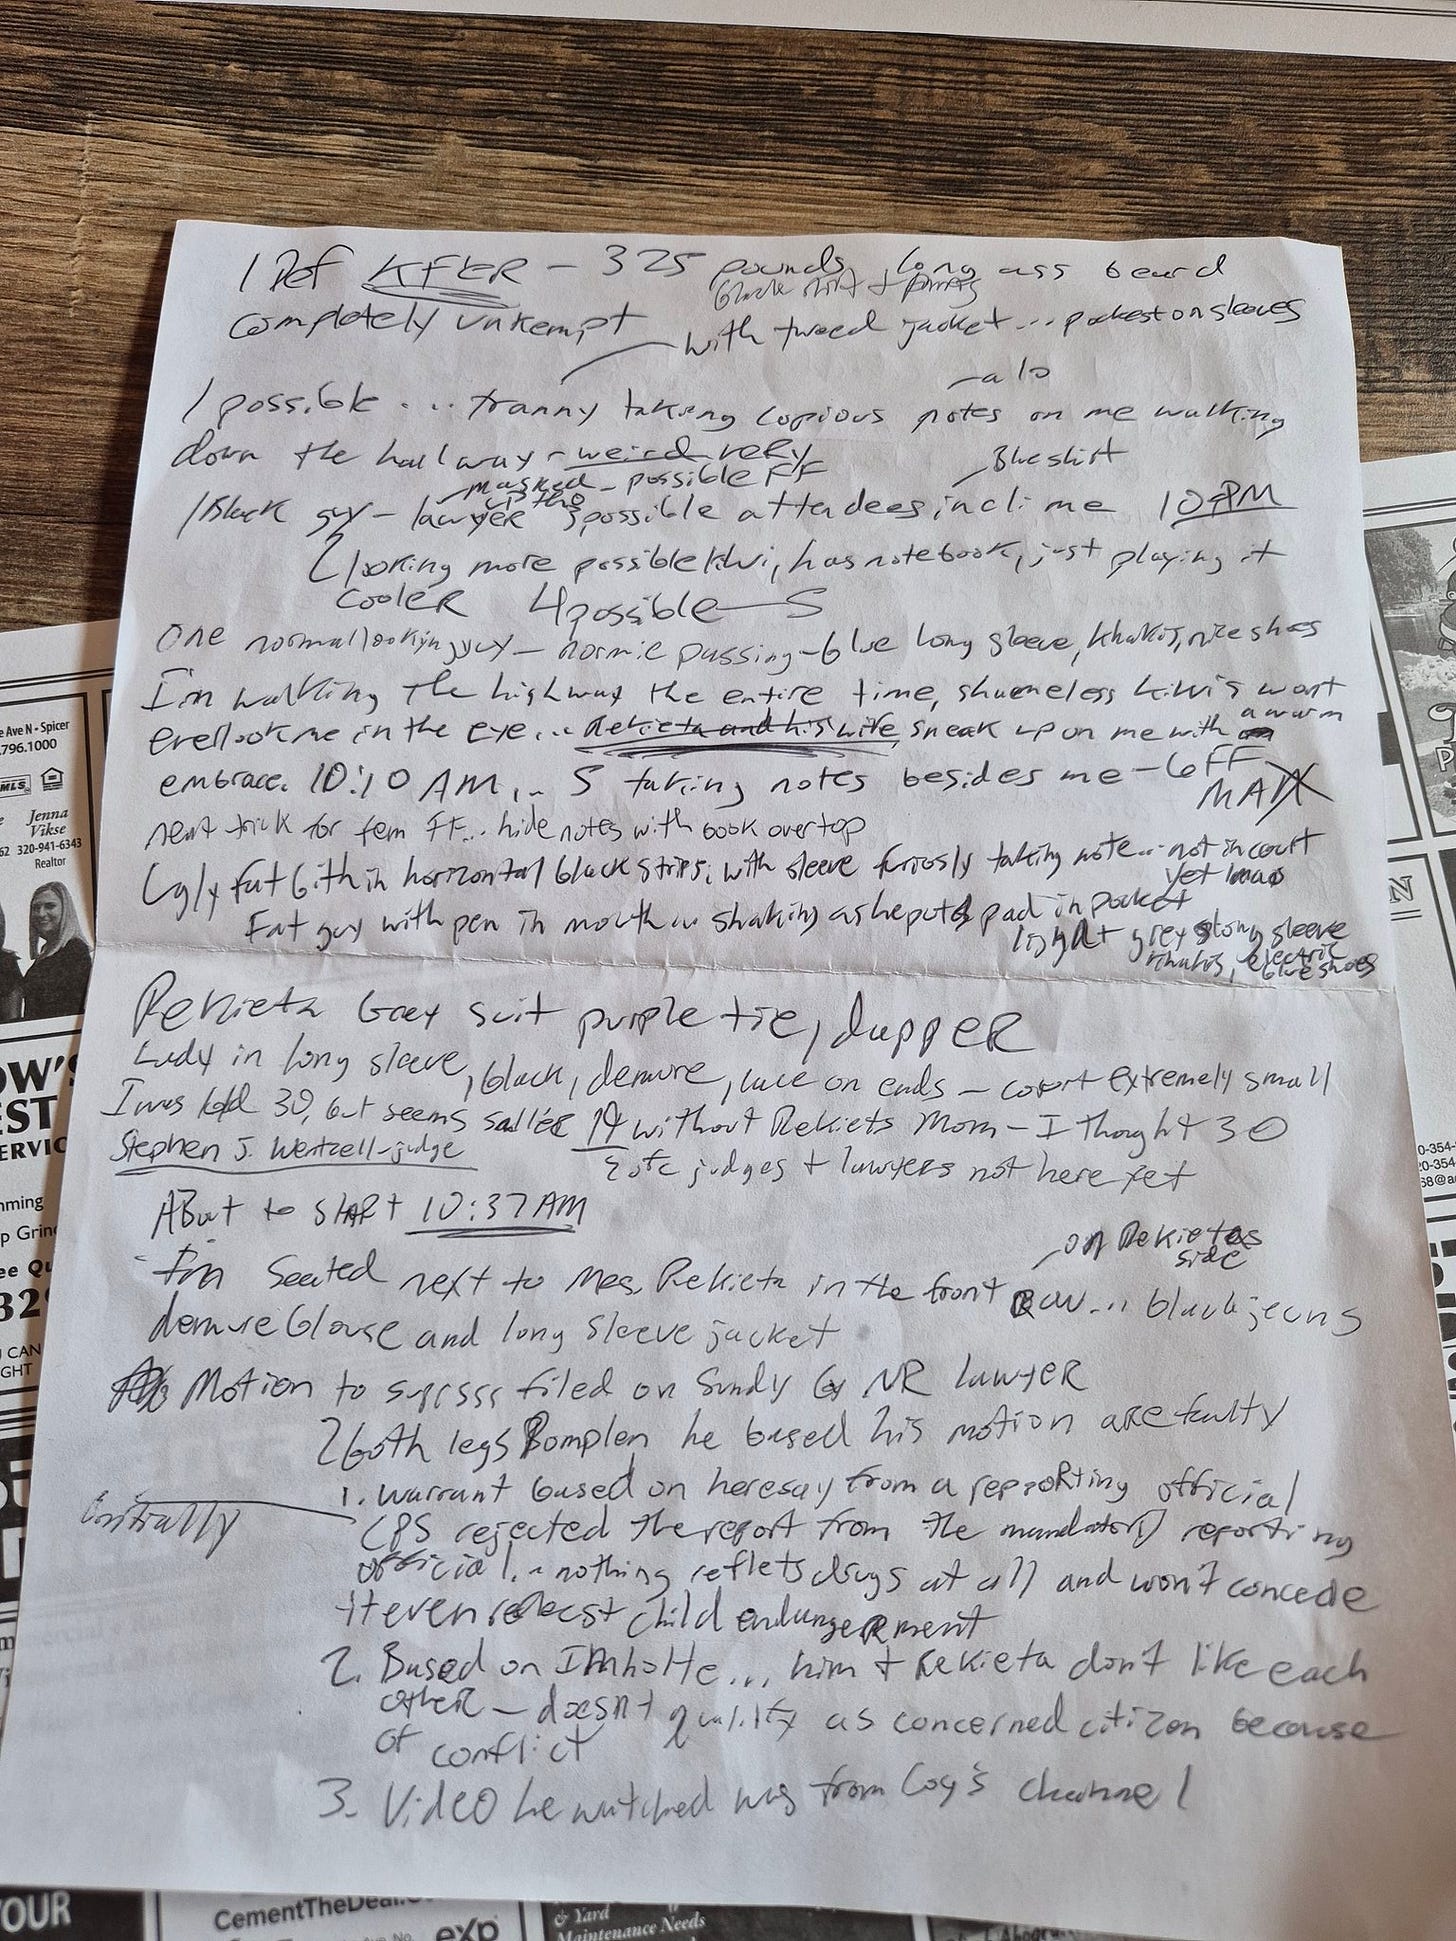 1 Def KFER - 325 pounds, long ass beard
black shirt + pants
completely unkempt - with tweed jacket... pockest on sleeves
- alo
1 possible ... tranny taking copious notes on me walking
down the hallway - weird very
Blue shirt
masked - possible FF
1 Black guy - lawyer possible attendees, incl: me 10 PM
looking more possible kiwi, has notebook, just playing it
cooler 4 possible - 5
One normal looking guy - normie passing - blue long sleeve, khakis, nice shoes
I'm walking the highway the entire time, shameless kiwis wont
even look me in the eye... Rekieta and his wife, sneak up on me with a warm
embrace. 10:10 AM... 5 taking notes besides me - 6 FF
MAX
neat trick for fem FF... hide notes with book over top
Ugly fat bith in horizontal black strips, with sleeve furiosly taking note... not in court
yet lmao
Fat guy with pen in mouth shaking as he puts pad in pocket
light grey long sleeve
khakis, electric
blue shoes
Rekieta Grey suit purple tie, dapper
Lady in long sleeve, black, demure, lace on ends - court extremely small
I was told 30, but seems smaller 19 without Rekiets Mom - I thought 30
Stephen J. Wentzell - judge
judges + lawyers not here yet
ABout to start 10:37 AM
on Rekietas
side
I'm seated next to Mrs. Rekieta in the front Row... black jeans
demure blouse and long sleeve jacket
Motion to supress filed on Sundy by NR lawyer
both legs he based his motion are faulty
1. warrant based on heresay from a reporting official
Initially
CPS rejected the report from the mandatory reporting
official... nothing reflets drugs at all and won't concede
it even reflecst child endangerment
2. Based on Imholte... him + Rekieta don't like each
other - doesn't qualify as concerned citizen because
of conflict
3. Video he watched was from Cog's channel
e Ave N • Spicer
.796.1000
MLS
Jenna
Vikse
62 320-941-6343
Realtor
OW'S
EST
ERVIC
mming
p Grin
ee Qu
32
U CAN
GHT
YOUR
CementTheDeal.
eXp
& Yard
Maintenance Needs
0-354-
20-354-